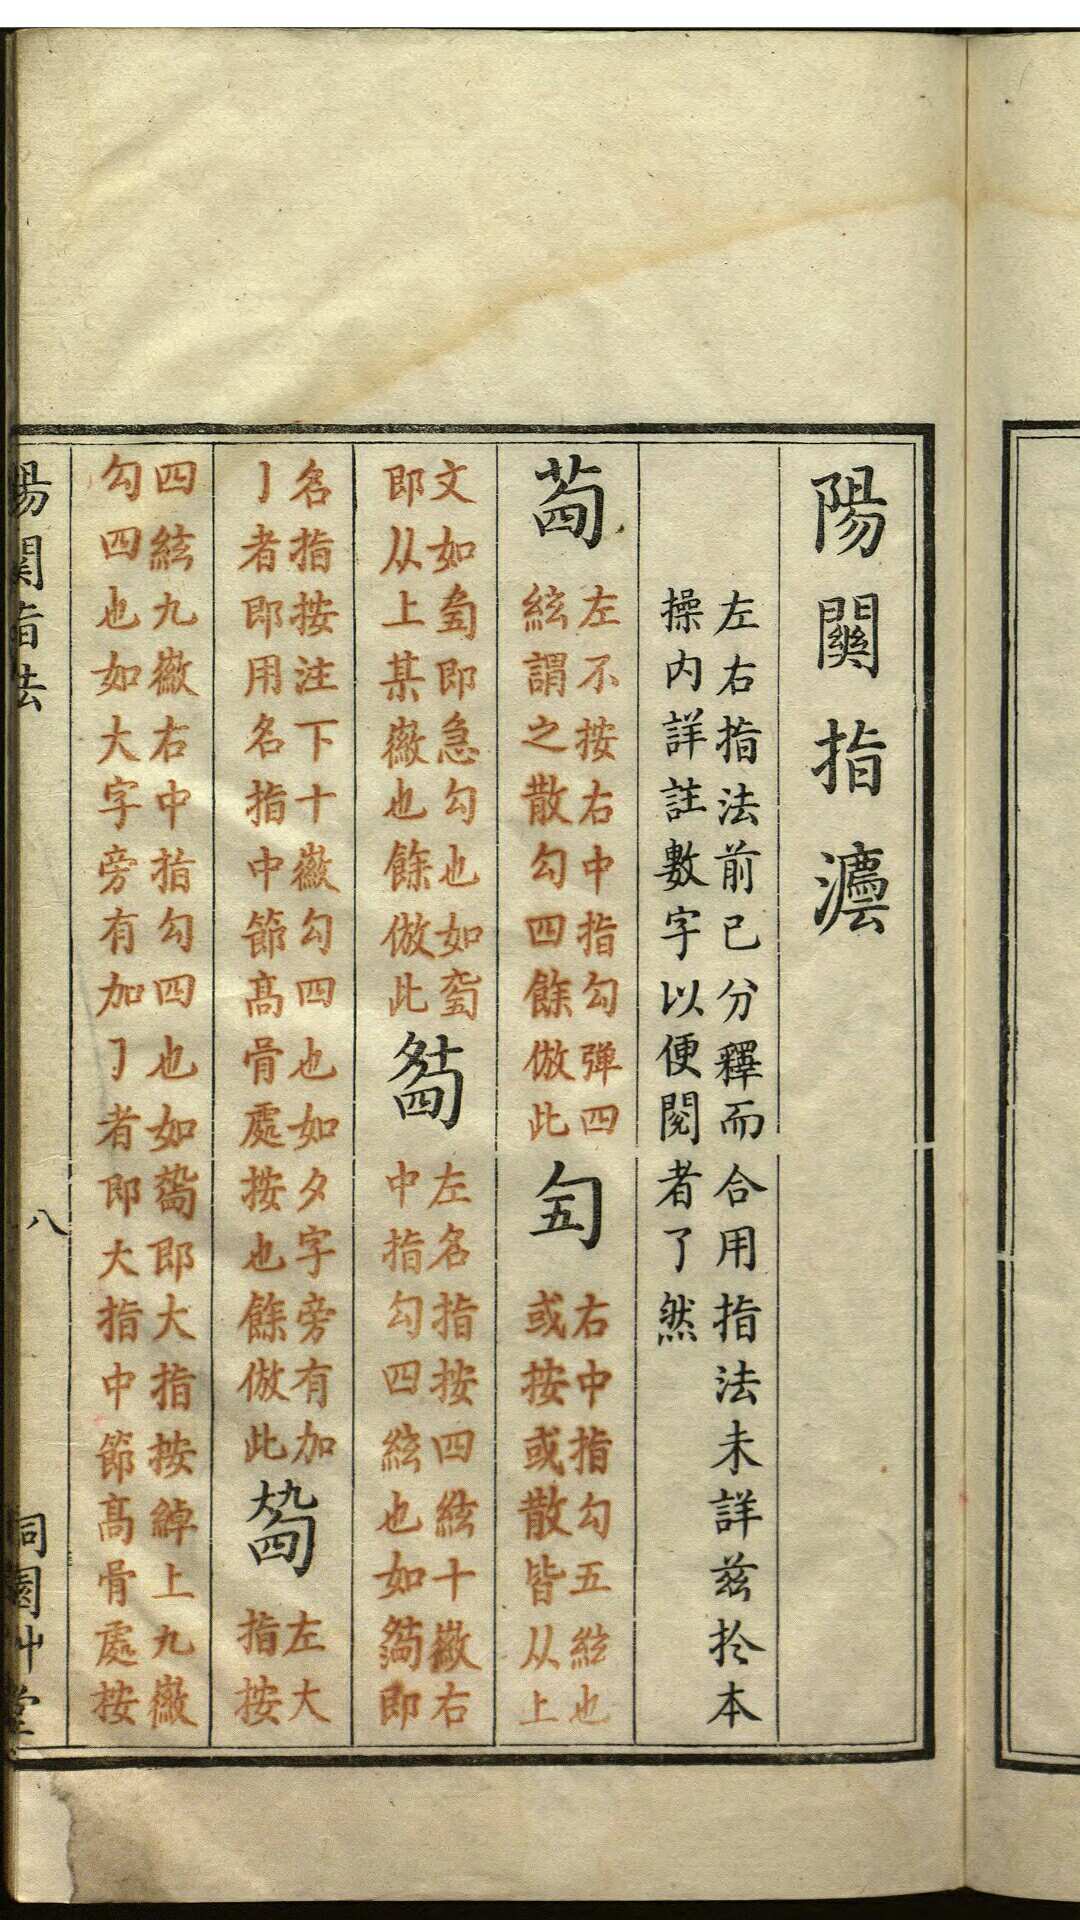 陽關指灋
左右指法前已分釋而合用指法未詳茲扵本
操內詳註數字以便閱者了然
左不按右中指勾弹四
絃謂之散勾四餘倣此
右中指勾五絃也
或按或散皆从上
文如
即急勾也如
即从上某徽也餘倣此
左名指按四絃十徽右
中指勾四絃也如
即
名指按注下十徽勾四也如夕字旁有加
亅者即用名指中節高骨處按也餘倣此
左大
指按
四絃九徽右中指勾四也如
即大指按綽上九徽
勾四也如大字旁有加亅者即大指中節高骨處按
陽關指法
八
桐園艸堂